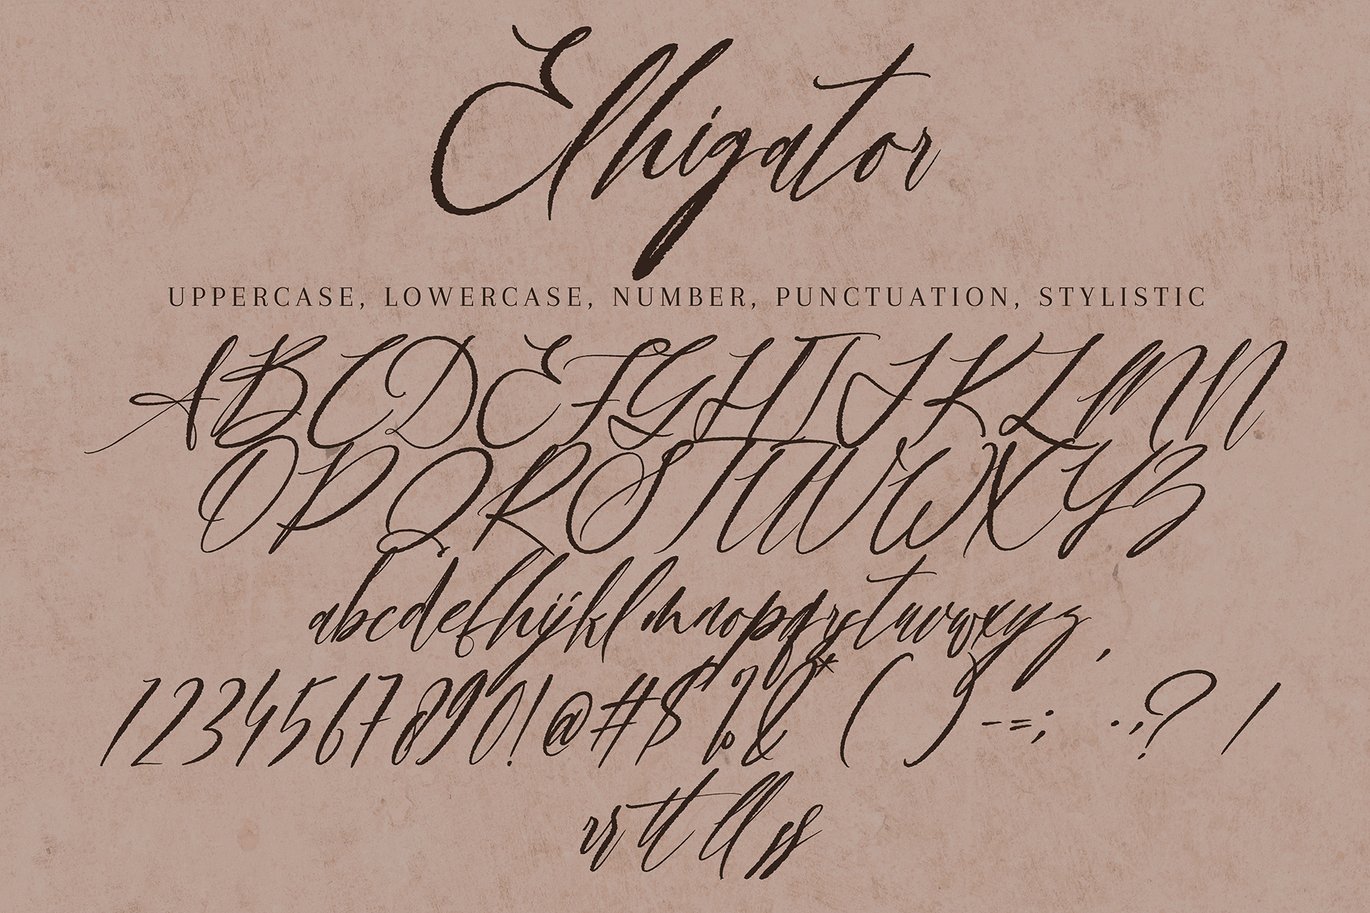 Elhigator
UPPERCASE, LOWERCASE, NUMBER, PUNCTUATION, STYLISTIC
ABCDEFGHIJKLMN
OPQRSTUVWXYZ
abcdefghijklmnopqrstuvwxyz,
1234567890!@#$%&* ( ) -=; .,:? /
rr tt ll ss